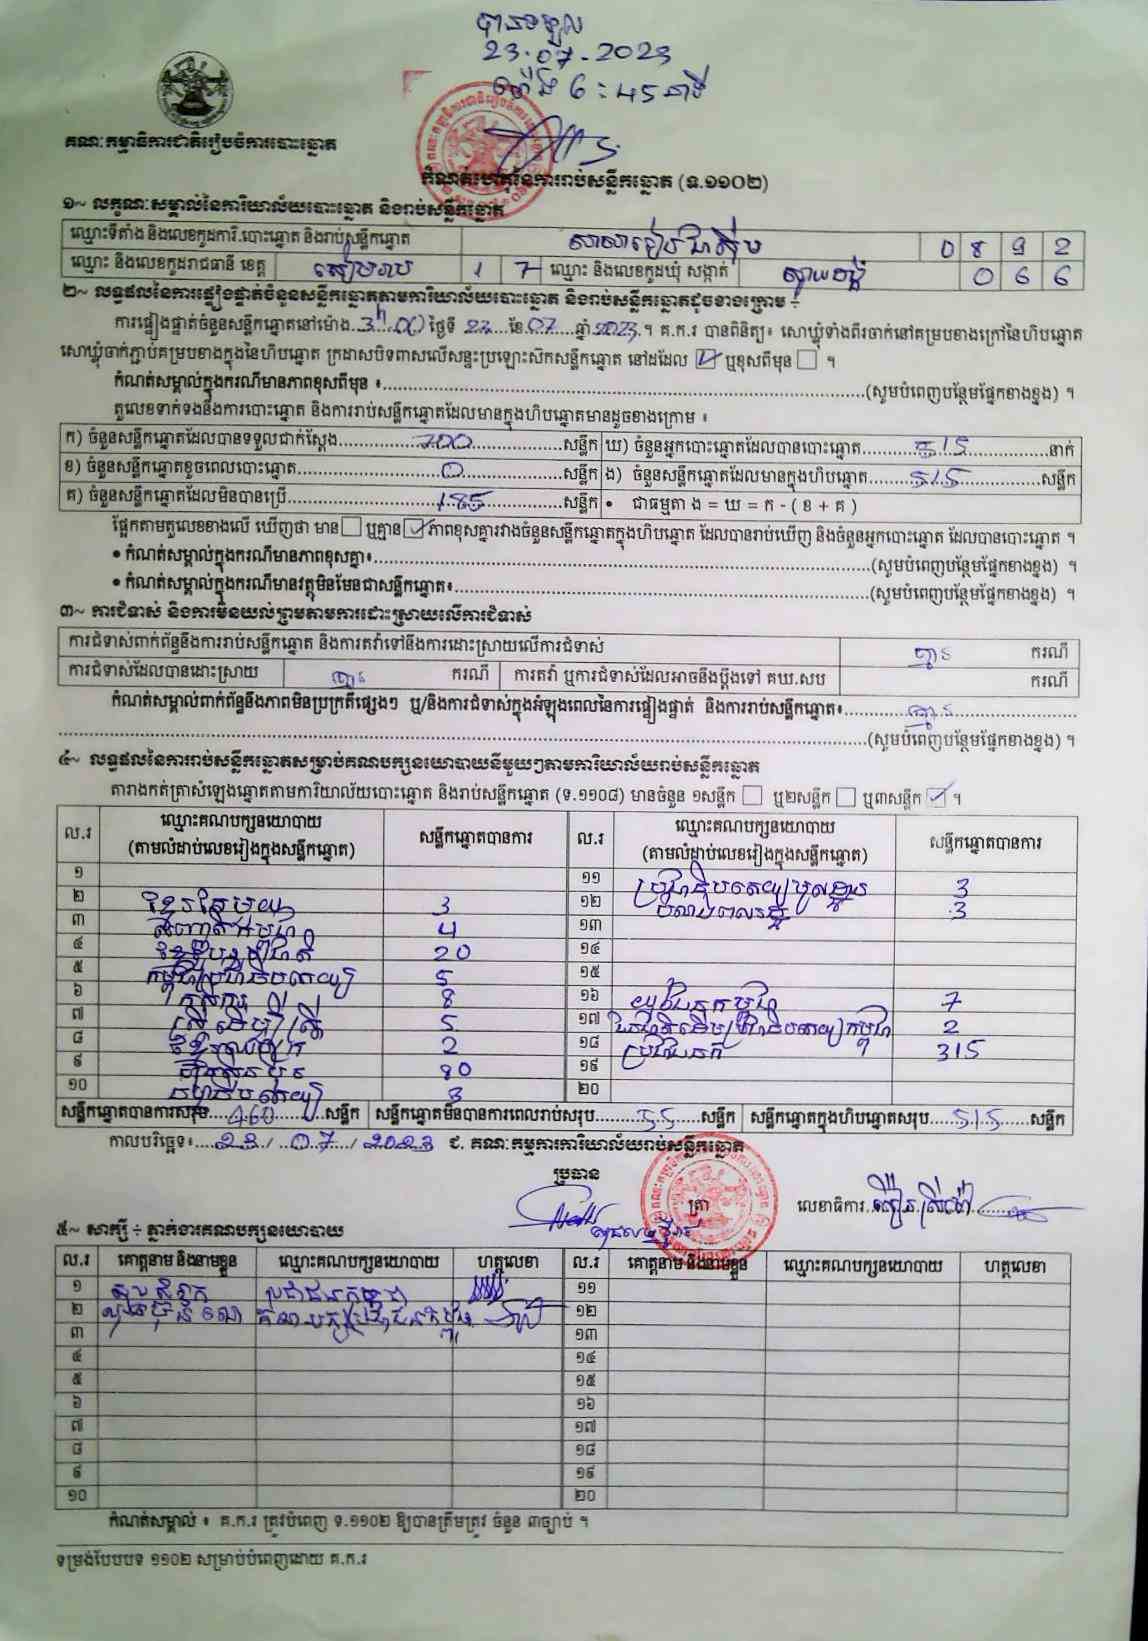 បានទទួល
23.07.2023
ម៉ោង 6:45 នាទី
គណៈកម្មាធិការជាតិរៀបចំការបោះឆ្នោត
កំណត់ហេតុនៃការរាប់សន្លឹកឆ្នោត (ទ.១១០២)
១~ លក្ខណៈសម្គាល់នៃការិយាល័យបោះឆ្នោត និងរាប់សន្លឹកឆ្នោត
ឈ្មោះទីតាំង និងលេខកូដការិ.បោះឆ្នោត និងរាប់សន្លឹកឆ្នោត 0 8 9 2
ឈ្មោះ និងលេខកូដរាជធានី ខេត្ត សៀមរាប 1 7 ឈ្មោះ និងលេខកូដឃុំ សង្កាត់ 0 6 6
២~ លទ្ធផលនៃការផ្ទៀងផ្ទាត់ចំនួនសន្លឹកឆ្នោតតាមការិយាល័យបោះឆ្នោត និងរាប់សន្លឹកឆ្នោតដូចខាងក្រោម ÷
ការផ្ទៀងផ្ទាត់ចំនួនសន្លឹកឆ្នោតនៅម៉ោង 3h 00 ថ្ងៃទី 23 ខែ 07 ឆ្នាំ 2023 ។ គ.ក.រ បានពិនិត្យ៖ សោឃ្លុំទាំងពីរចាក់នៅគម្របខាងក្រៅនៃហិបឆ្នោត
សោឃ្លុំចាក់ភ្ជាប់គម្របខាងក្នុងនៃហិបឆ្នោត ក្រដាសបិទពាសលើសន្ទះប្រឡោះស៊កសន្លឹកឆ្នោត នៅដដែល ☑ ឬខុសពីមុន ☐ ។
កំណត់សម្គាល់ក្នុងករណីមានភាពខុសពីមុន ៖ (សូមបំពេញបន្ថែមផ្នែកខាងខ្នង) ។
តួលេខទាក់ទងនឹងការបោះឆ្នោត និងការរាប់សន្លឹកឆ្នោតដែលមានក្នុងហិបឆ្នោតមានដូចខាងក្រោម ៖
ក) ចំនួនសន្លឹកឆ្នោតដែលបានទទួលជាក់ស្តែង 700 សន្លឹក ឃ) ចំនួនអ្នកបោះឆ្នោតដែលបានបោះឆ្នោត 515 នាក់
ខ) ចំនួនសន្លឹកឆ្នោតខូចពេលបោះឆ្នោត 0 សន្លឹក ង) ចំនួនសន្លឹកឆ្នោតដែលមានក្នុងហិបឆ្នោត 515 សន្លឹក
គ) ចំនួនសន្លឹកឆ្នោតដែលមិនបានប្រើ 185 សន្លឹក • ជាធម្មតា ង = ឃ = ក - ( ខ + គ )
ផ្អែកតាមតួលេខខាងលើ ឃើញថា មាន ☐ ឬគ្មាន ☑ ភាពខុសគ្នារវាងចំនួនសន្លឹកឆ្នោតក្នុងហិបឆ្នោត ដែលបានរាប់ឃើញ និងចំនួនអ្នកបោះឆ្នោត ដែលបានបោះឆ្នោត ។
• កំណត់សម្គាល់ក្នុងករណីមានភាពខុសគ្នា៖ (សូមបំពេញបន្ថែមផ្នែកខាងខ្នង) ។
• កំណត់សម្គាល់ក្នុងករណីមានវត្ថុមិនមែនជាសន្លឹកឆ្នោត៖ (សូមបំពេញបន្ថែមផ្នែកខាងខ្នង) ។
៣~ ការជំទាស់ និងការមិនយល់ព្រមតាមការដោះស្រាយលើការជំទាស់
ការជំទាស់ពាក់ព័ន្ធនឹងការរាប់សន្លឹកឆ្នោត និងការតវ៉ាទៅនឹងការដោះស្រាយលើការជំទាស់ គ្មាន ករណី
ការជំទាស់ដែលបានដោះស្រាយ គ្មាន ករណី ការតវ៉ា ឬការជំទាស់ដែលអាចនឹងប្តឹងទៅ គឃ.សប ករណី
កំណត់សម្គាល់ពាក់ព័ន្ធនឹងភាពមិនប្រក្រតីផ្សេងៗ ឬ/និងការជំទាស់ក្នុងអំឡុងពេលនៃការផ្ទៀងផ្ទាត់ និងការរាប់សន្លឹកឆ្នោត៖ គ្មាន
(សូមបំពេញបន្ថែមផ្នែកខាងខ្នង) ។
៤~ លទ្ធផលនៃការរាប់សន្លឹកឆ្នោតសម្រាប់គណបក្សនយោបាយនីមួយៗតាមការិយាល័យរាប់សន្លឹកឆ្នោត
តារាងកត់ត្រាសំឡេងឆ្នោតតាមការិយាល័យបោះឆ្នោត និងរាប់សន្លឹកឆ្នោត (ទ.១១០៨) មានចំនួន ១សន្លឹក ☐ ឬ២សន្លឹក ☐ ឬ៣សន្លឹក ☑ ។
ល.រ ឈ្មោះគណបក្សនយោបាយ (តាមលំដាប់លេខរៀងក្នុងសន្លឹកឆ្នោត) សន្លឹកឆ្នោតបានការ ល.រ ឈ្មោះគណបក្សនយោបាយ (តាមលំដាប់លេខរៀងក្នុងសន្លឹកឆ្នោត) សន្លឹកឆ្នោតបានការ
១ ១១ ប្រជាធិបតេយ្យមូលដ្ឋាន 3
២ ខ្មែរតែមួយ 3 ១២ 3
៣ 4 ១៣
៤ 20 ១៤
៥ កម្ពុជាប្រជាធិបតេយ្យ 5 ១៥
៦ កសិករ 8 ១៦ យុវជនកម្ពុជា 7
៧ ស្ត្រីដើម្បីស្ត្រី 5 ១៧ 2
៨ 2 ១៨ ប្រជាជន 315
៩ 80 ១៩
១០ ប្រជាធិបតេយ្យ 3 ២០
សន្លឹកឆ្នោតបានការសរុប 460 សន្លឹក សន្លឹកឆ្នោតមិនបានការពេលរាប់សរុប 55 សន្លឹក សន្លឹកឆ្នោតក្នុងហិបឆ្នោតសរុប 515 សន្លឹក
កាលបរិច្ឆេទ៖ 23/ 07/ 2023 ជ. គណៈកម្មការការិយាល័យរាប់សន្លឹកឆ្នោត
ប្រធាន ត្រា លេខាធិការ
៥~ សាក្សី ÷ ភ្នាក់ងារគណបក្សនយោបាយ
ល.រ គោត្តនាម និងនាមខ្លួន ឈ្មោះគណបក្សនយោបាយ ហត្ថលេខា ល.រ គោត្តនាម និងនាមខ្លួន ឈ្មោះគណបក្សនយោបាយ ហត្ថលេខា
១ ប្រជាជនកម្ពុជា ១១
២ គណបក្សប្រជាជនកម្ពុជា ១២
៣ ១៣
៤ ១៤
៥ ១៥
៦ ១៦
៧ ១៧
៨ ១៨
៩ ១៩
១០ ២០
កំណត់សម្គាល់ ៖ គ.ក.រ ត្រូវបំពេញ ទ.១១០២ ឱ្យបានត្រឹមត្រូវ ចំនួន ៣ច្បាប់ ។
ទម្រង់បែបបទ ១១០២ សម្រាប់បំពេញដោយ គ.ក.រ